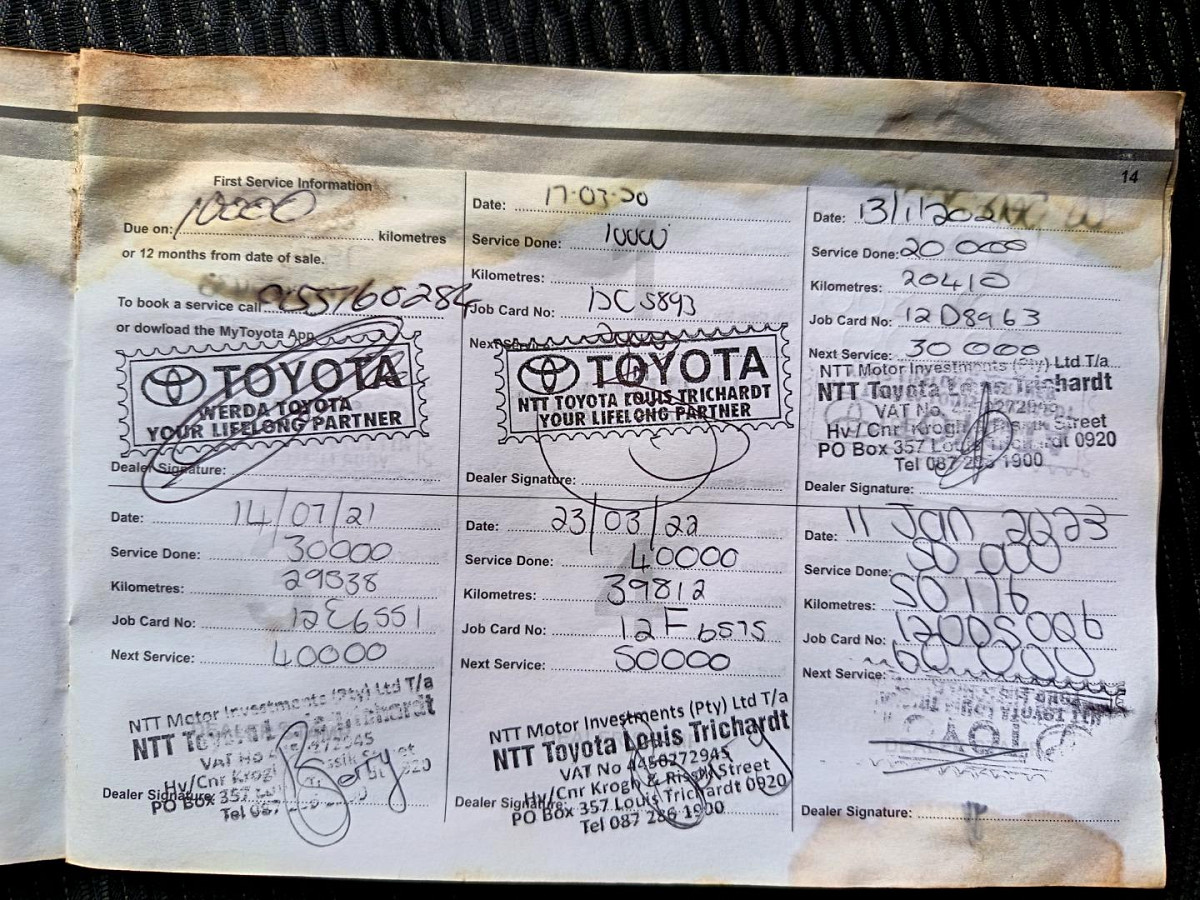 14
First Service Information
Due on: 10000 kilometres
or 12 months from date of sale.
To book a service call 0155160284
or dowload the MyToyota App
TOYOTA
WERDA TOYOTA
YOUR LIFELONG PARTNER
Dealer Signature:
Date: 17-03-20
Service Done: 10000
Kilometres:
Job Card No:
Next
TOYOTA
NTT TOYOTA LOUIS TRICHARDT
YOUR LIFELONG PARTNER
Dealer Signature:
Date: 13/1/202
Service Done: 20 000
Kilometres: 20410
Job Card No: 12D8963
Next Service: 30 000
NTT Motor Investments (Pty) Ltd T/a
NTT Toyota Louis Trichardt
VAT No.
Hv/Cnr Krogh & Rissik Street
PO Box 357 Louis Trichardt 0920
Tel 087 286 1900
Dealer Signature:
Date: 14/07/21
Service Done: 30000
Kilometres: 29538
Job Card No: 12E6551
Next Service: 40000
NTT Motor Investments (Pty) Ltd T/a
NTT Toyota Louis Trichardt
VAT No
Hv/Cnr Krogh
PO Box 357
Tel 087
Dealer Signature:
Date: 23/03/22
Service Done: 40000
Kilometres: 39812
Job Card No: 12F6575
Next Service: 50000
NTT Motor Investments (Pty) Ltd T/a
NTT Toyota Louis Trichardt
VAT No 4450272945
Hv/Cnr Krogh & Rissik Street
PO Box 357 Louis Trichardt 0920
Tel 087 286 1900
Dealer Signature:
Date: 11 Jan 2023
Service Done: 50 000
Kilometres: 50 116
Job Card No:
Next Service: 60 000
Dealer Signature: